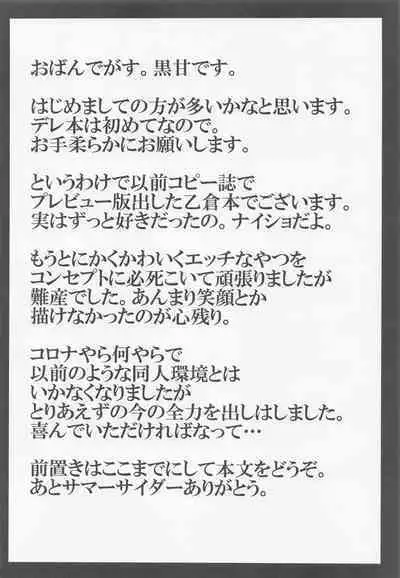 おばんでがす。黒甘です。
はじめましての方が多いかなと思います。
デレ本は初めてなので。
お手柔らかにお願いします。
というわけで以前コピー誌で
プレビュー版出した乙倉本でございます。
実はずっと好きだったの。ナイショだよ。
もうとにかくかわいくエッチなやつを
コンセプトに必死こいて頑張りましたが
難産でした。あんまり笑顔とか
描けなかったのが心残り。
コロナやら何やらで
以前のような同人環境とは
いかなくなりましたが
とりあえずの今の全力を出しはしました。
喜んでいただければなって…
前置きはここまでにして本文をどうぞ。
あとサマーサイダーありがとう。